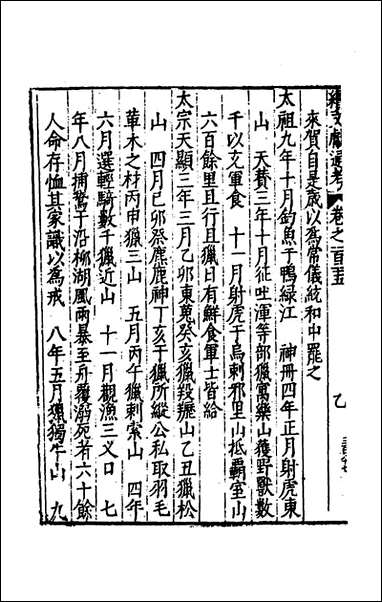 續文獻通考 卷之一百
乙
來賀自是歲以為常儀統和中罷之
太祖九年十月釣魚于鴨綠江 神冊四年正月射虎東
山 天贊三年十月征吐渾等部獵寓樂山獲野獸數
千以充軍食 十一月射虎于烏剌邪里山抵霸室山
六百餘里且行且獵日有鮮食軍士皆給
太宗天顯三年三月乙卯東蒐癸亥獵羖䍽山乙丑獵松
山 四月己卯祭麃鹿神丁亥于獵所縱公私取羽毛
革木之材丙申獵三山 五月丙午獵剌索山 四年
六月選輕騎數千獵近山 十一月觀漁三义口 七
年八月捕鵞于沿柳湖風雨暴至舟覆溺死者六十餘
人命存恤其家識以為戒 八年五月獵獨牛山 九